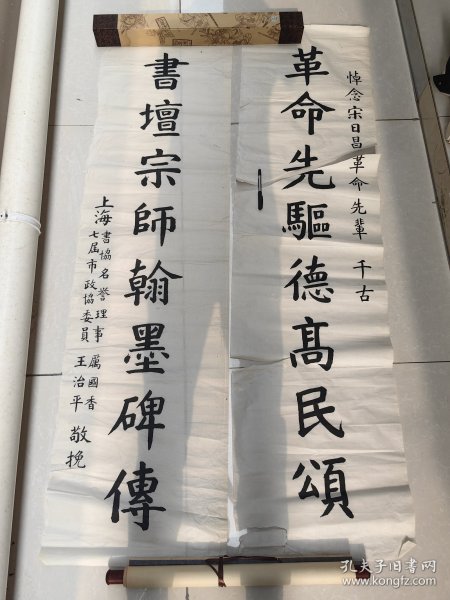 悼念宋日昌革命先輩 千古
革命先驅德高民頌
書壇宗師翰墨碑傳
上海書協名誉理事 厲國香
七届市政協委員 王治平 敬挽
孔夫子旧书网
www.kongfz.com